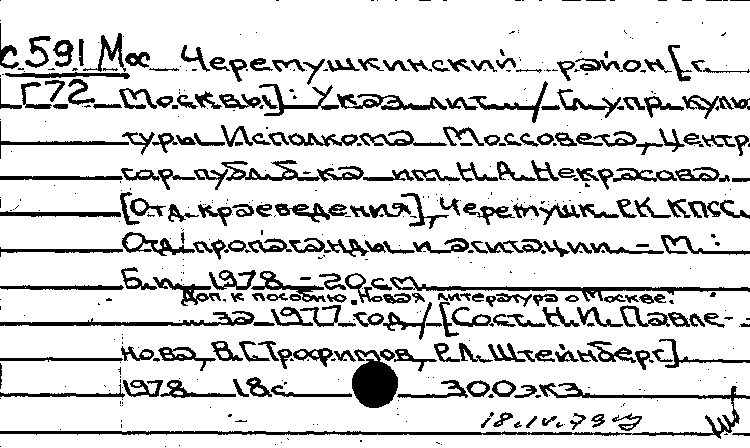 с591 Мос Черемушкинский район [г.
Г72 Москвы]: Указ. лит... / Гл. упр. куль
туры Исполкома Моссовета, Центр.
гор. публ. б-ка им. Н.А. Некрасова.
[Отд. краеведения], Черемушк. РК КПСС.
Отд. пропаганды и агитации. - М.:
Б.и., 1978. - 20 см.
Доп. к пособию „Новая литература о Москве".
... за 1977 год / [Сост. Н.И. Павле-
нова, В.Г. Трофимов, Р.Л. Штейнберг].
1978. 18 с. 300 экз.
18.IV.79